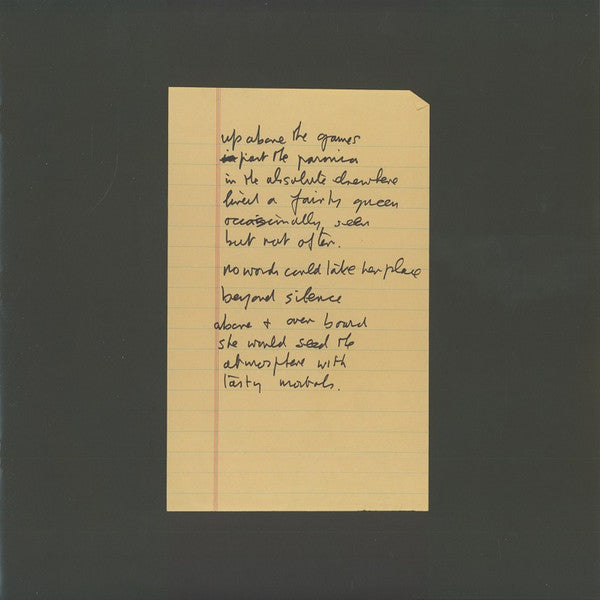 up above the games
past the paronia
in the absolute elsewhere
lived a fairly queen
occasionally seen
but not often.
no words could take her place
beyond silence
above + over board
she would seed the
atmosphere with
tasty morsals.